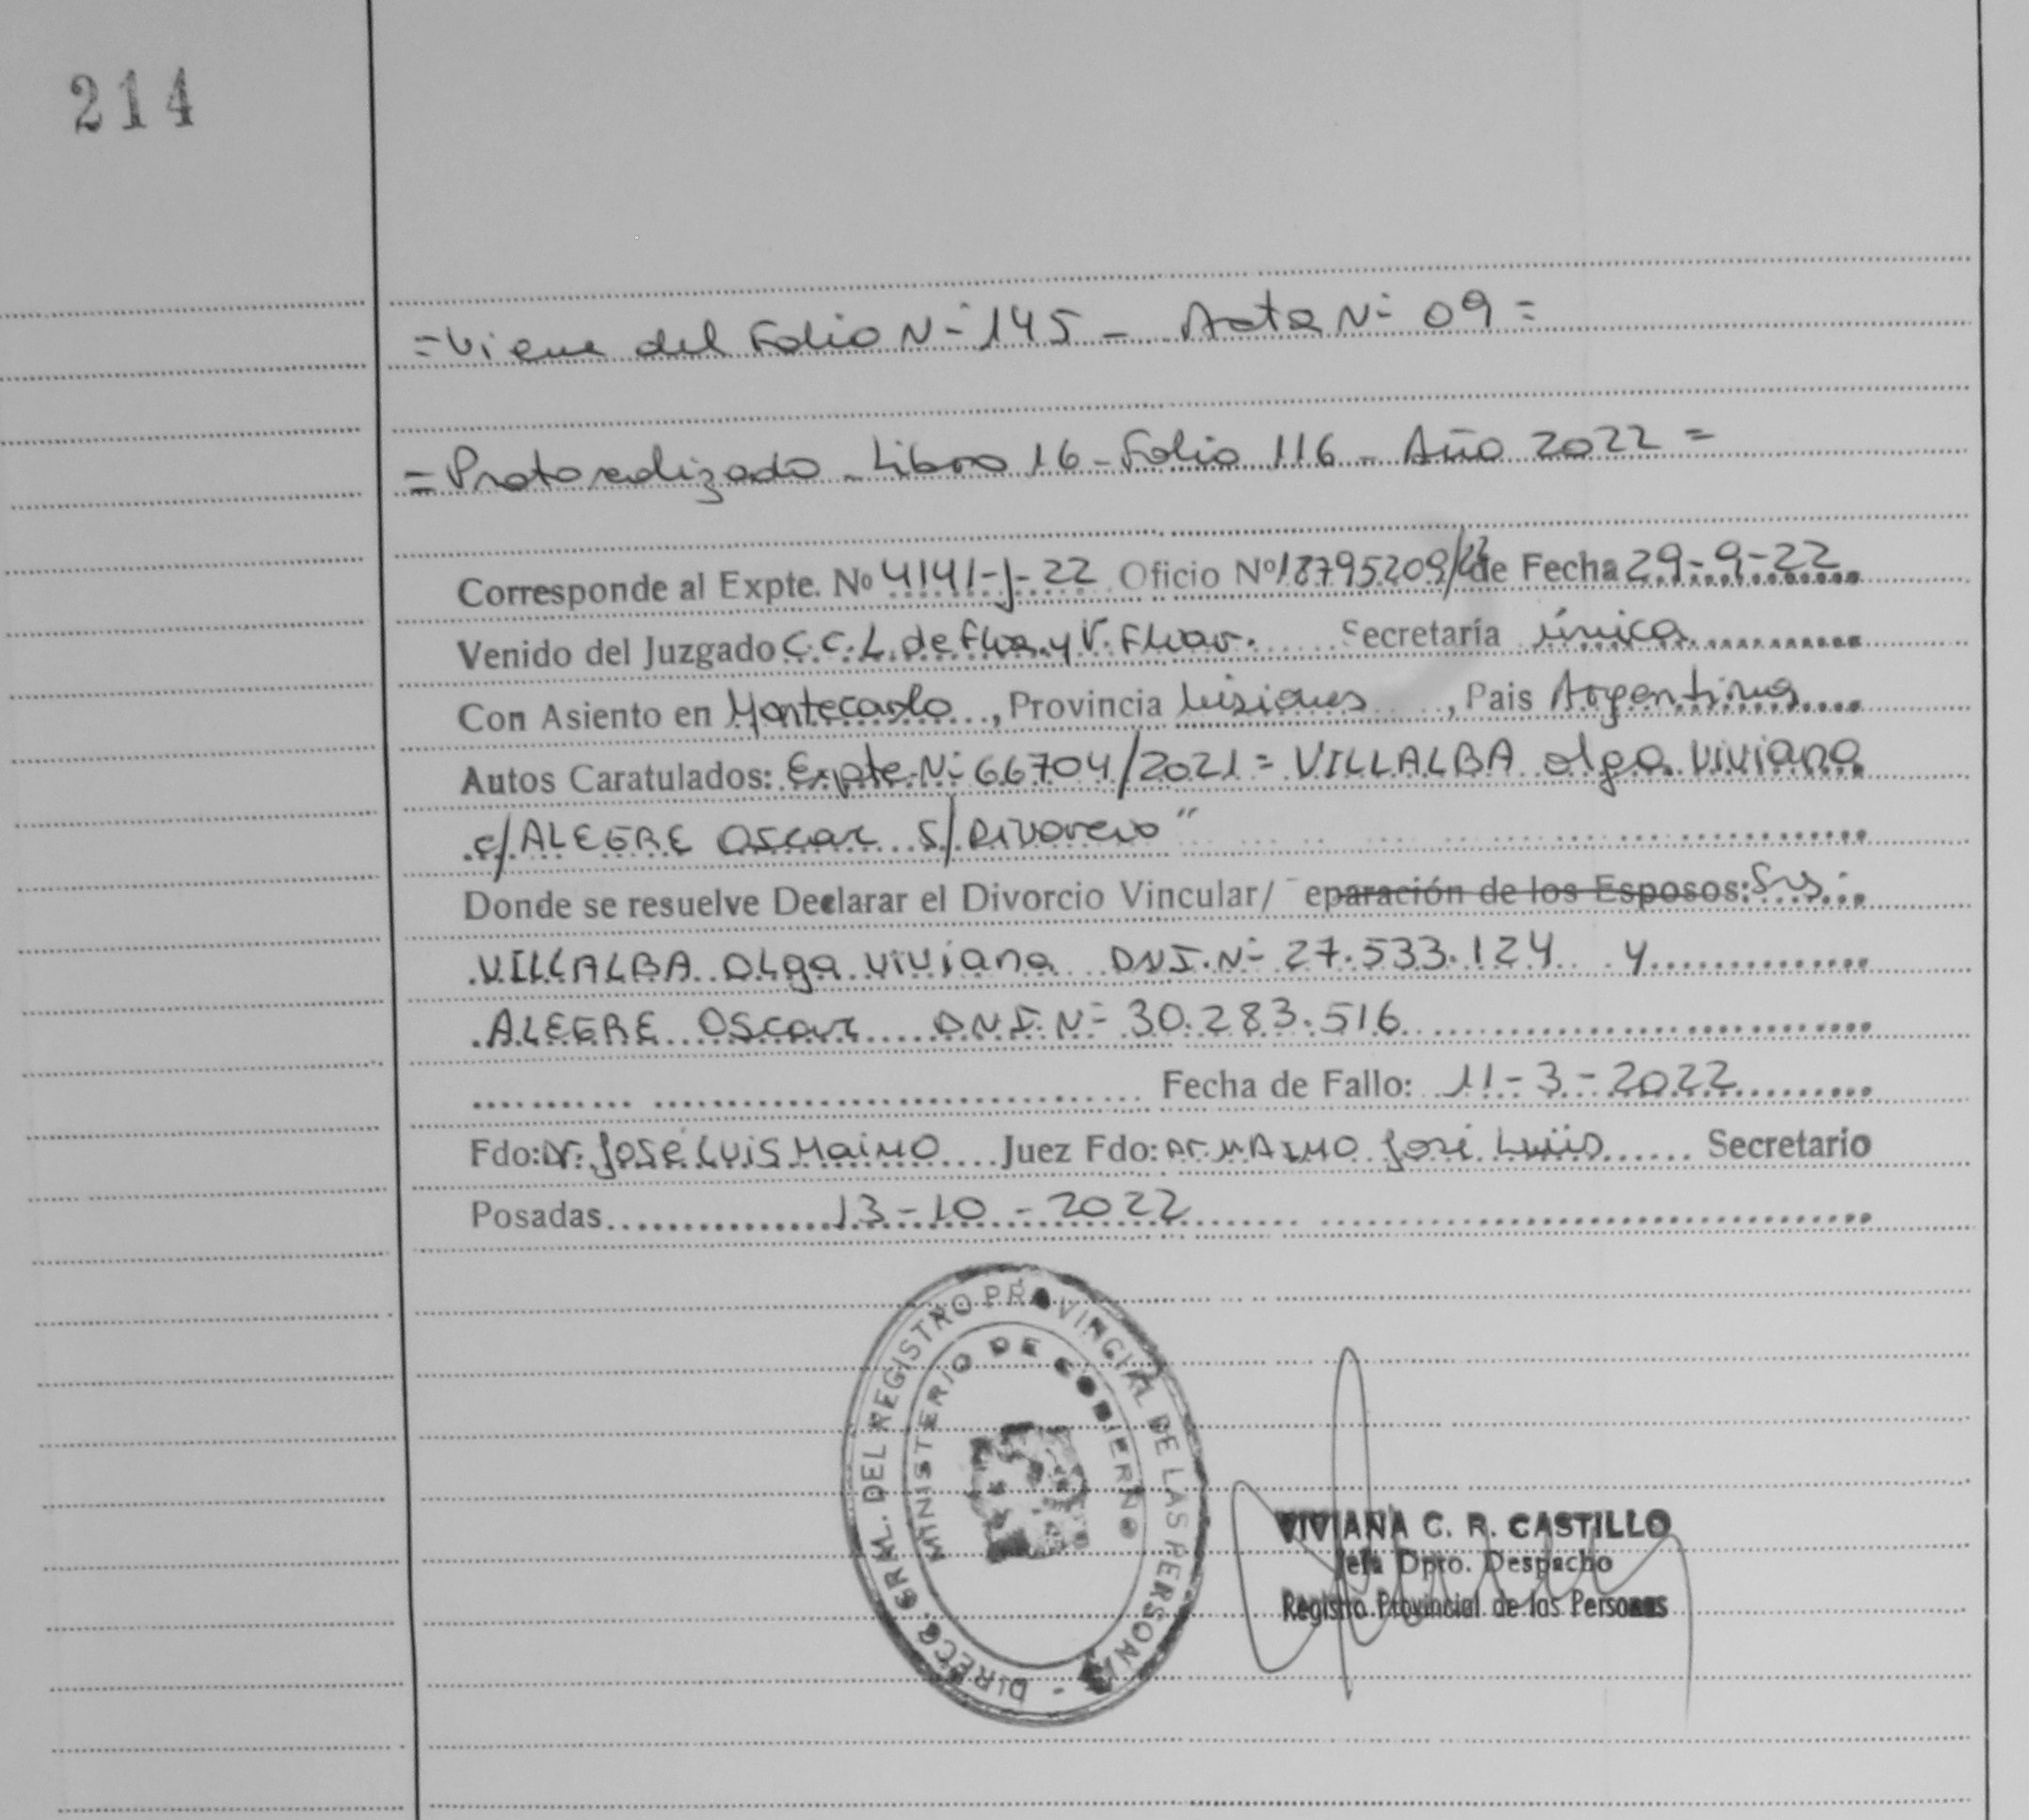 214
=Viene del Folio Nº 145 - Acta Nº 09=
=Protocolizado - Libro 16 - Folio 116 - Año 2022=
Corresponde al Expte. Nº 4141-J-22 Oficio Nº 18795209/22 de Fecha 29-9-22
Venido del Juzgado C.C.L. de Flia. y V. Fliar. Secretaría única
Con Asiento en Montecarlo, Provincia Misiones, Pais Argentina
Autos Caratulados: Expte Nº 66704/2021= VILLALBA Olga Viviana
c/ALEGRE Oscar s/Divorcio"
Donde se resuelve Declarar el Divorcio Vincular/ eparación de los Esposos: Srs:
VILLALBA Olga Viviana DNI.Nº 27.533.124 y
ALEGRE Oscar DNI.Nº 30.283.516
Fecha de Fallo: 11-3-2022
Fdo: Dr. José Luis Maimo Juez Fdo: Dr. MAIMO José Luis Secretario
Posadas 13-10-2022
DIRECC. GRAL. DEL REGISTRO PROVINCIAL DE LAS PERSONAS -
MINISTERIO DE GOBIERNO
VIVIANA C. R. CASTILLO
Jefa Dpto. Despacho
Registro Provincial de las Personas